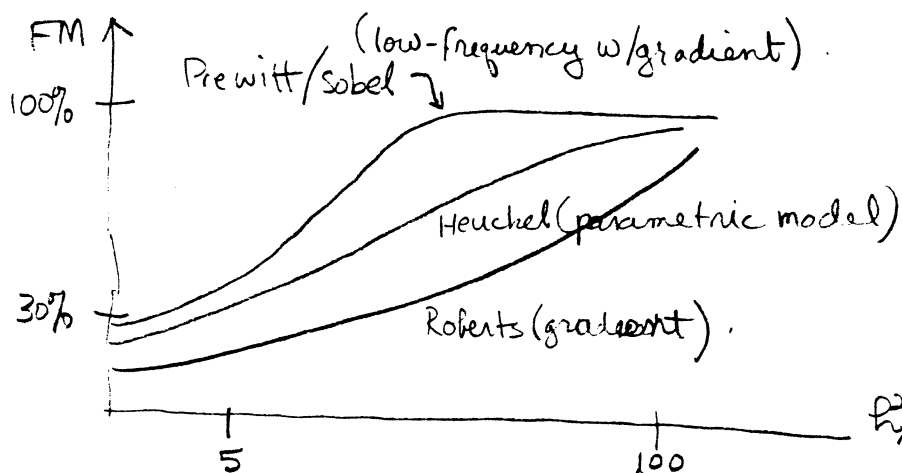 FM
(low-frequency w/gradient).
Prewitt/sobel
100%
Heuckel (parametric model)
30%
Roberts (gradient).
5
100